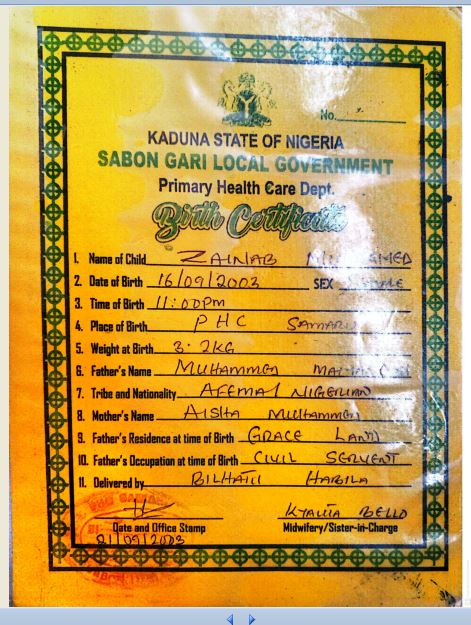 No.
KADUNA STATE OF NIGERIA
SABON GARI LOCAL GOVERNMENT
Primary Health Care Dept.
Birth Certificate
1. Name of Child ZAINAB
2. Date of Birth 16/09/2003 SEX
3. Time of Birth 11:00PM
4. Place of Birth PHC SAMARU
5. Weight at Birth 3.2KG
6. Father's Name MUHAMMED
7. Tribe and Nationality AFEMAI NIGERIAN
8. Mother's Name AISHA MUHAMMED
9. Father's Residence at time of Birth GRACE LAND
10. Father's Occupation at time of Birth CIVIL SERVENT
11. Delivered by HABILA
BELLO
Date and Office Stamp Midwifery/Sister-in-Charge
21/09/2003